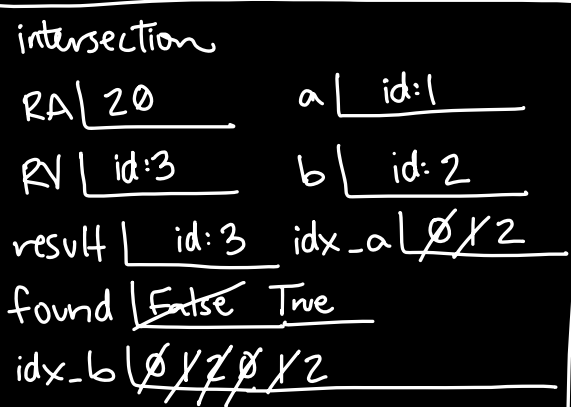 intersection
RA 20 a id:1
RV id:3 b id: 2
result id: 3 idx_a 0 1 2
found False True
idx_b 0 1 2 0 1 2